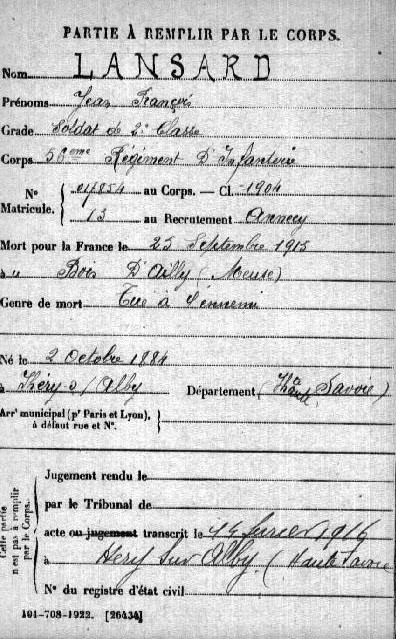 PARTIE À REMPLIR PAR LE CORPS.
Nom LANSARD
Prénoms Jean François
Grade Soldat de 2e Classe
Corps 56eme Régiment D'Infanterie
N° Matricule. 017854 au Corps. — Cl. 1904
13 au Recrutement Annecy
Mort pour la France le 23 Septembre 1915
à u Bois D'Ailly (Meuse)
Genre de mort Tué à l'ennemi
Né le 2 Octobre 1884
à Héry-s/Alby Département (Hte Haute Savoie)
Arrt municipal (pr Paris et Lyon),
à défaut rue et N°.
Cette partie
n'est pas à remplir
par le Corps.
Jugement rendu le
par le Tribunal de
acte ou jugement transcrit le 14 février 1916
à Hery Sur Alby (Haute Savoie
N° du registre d'état civil
101-708-1922. [26434]